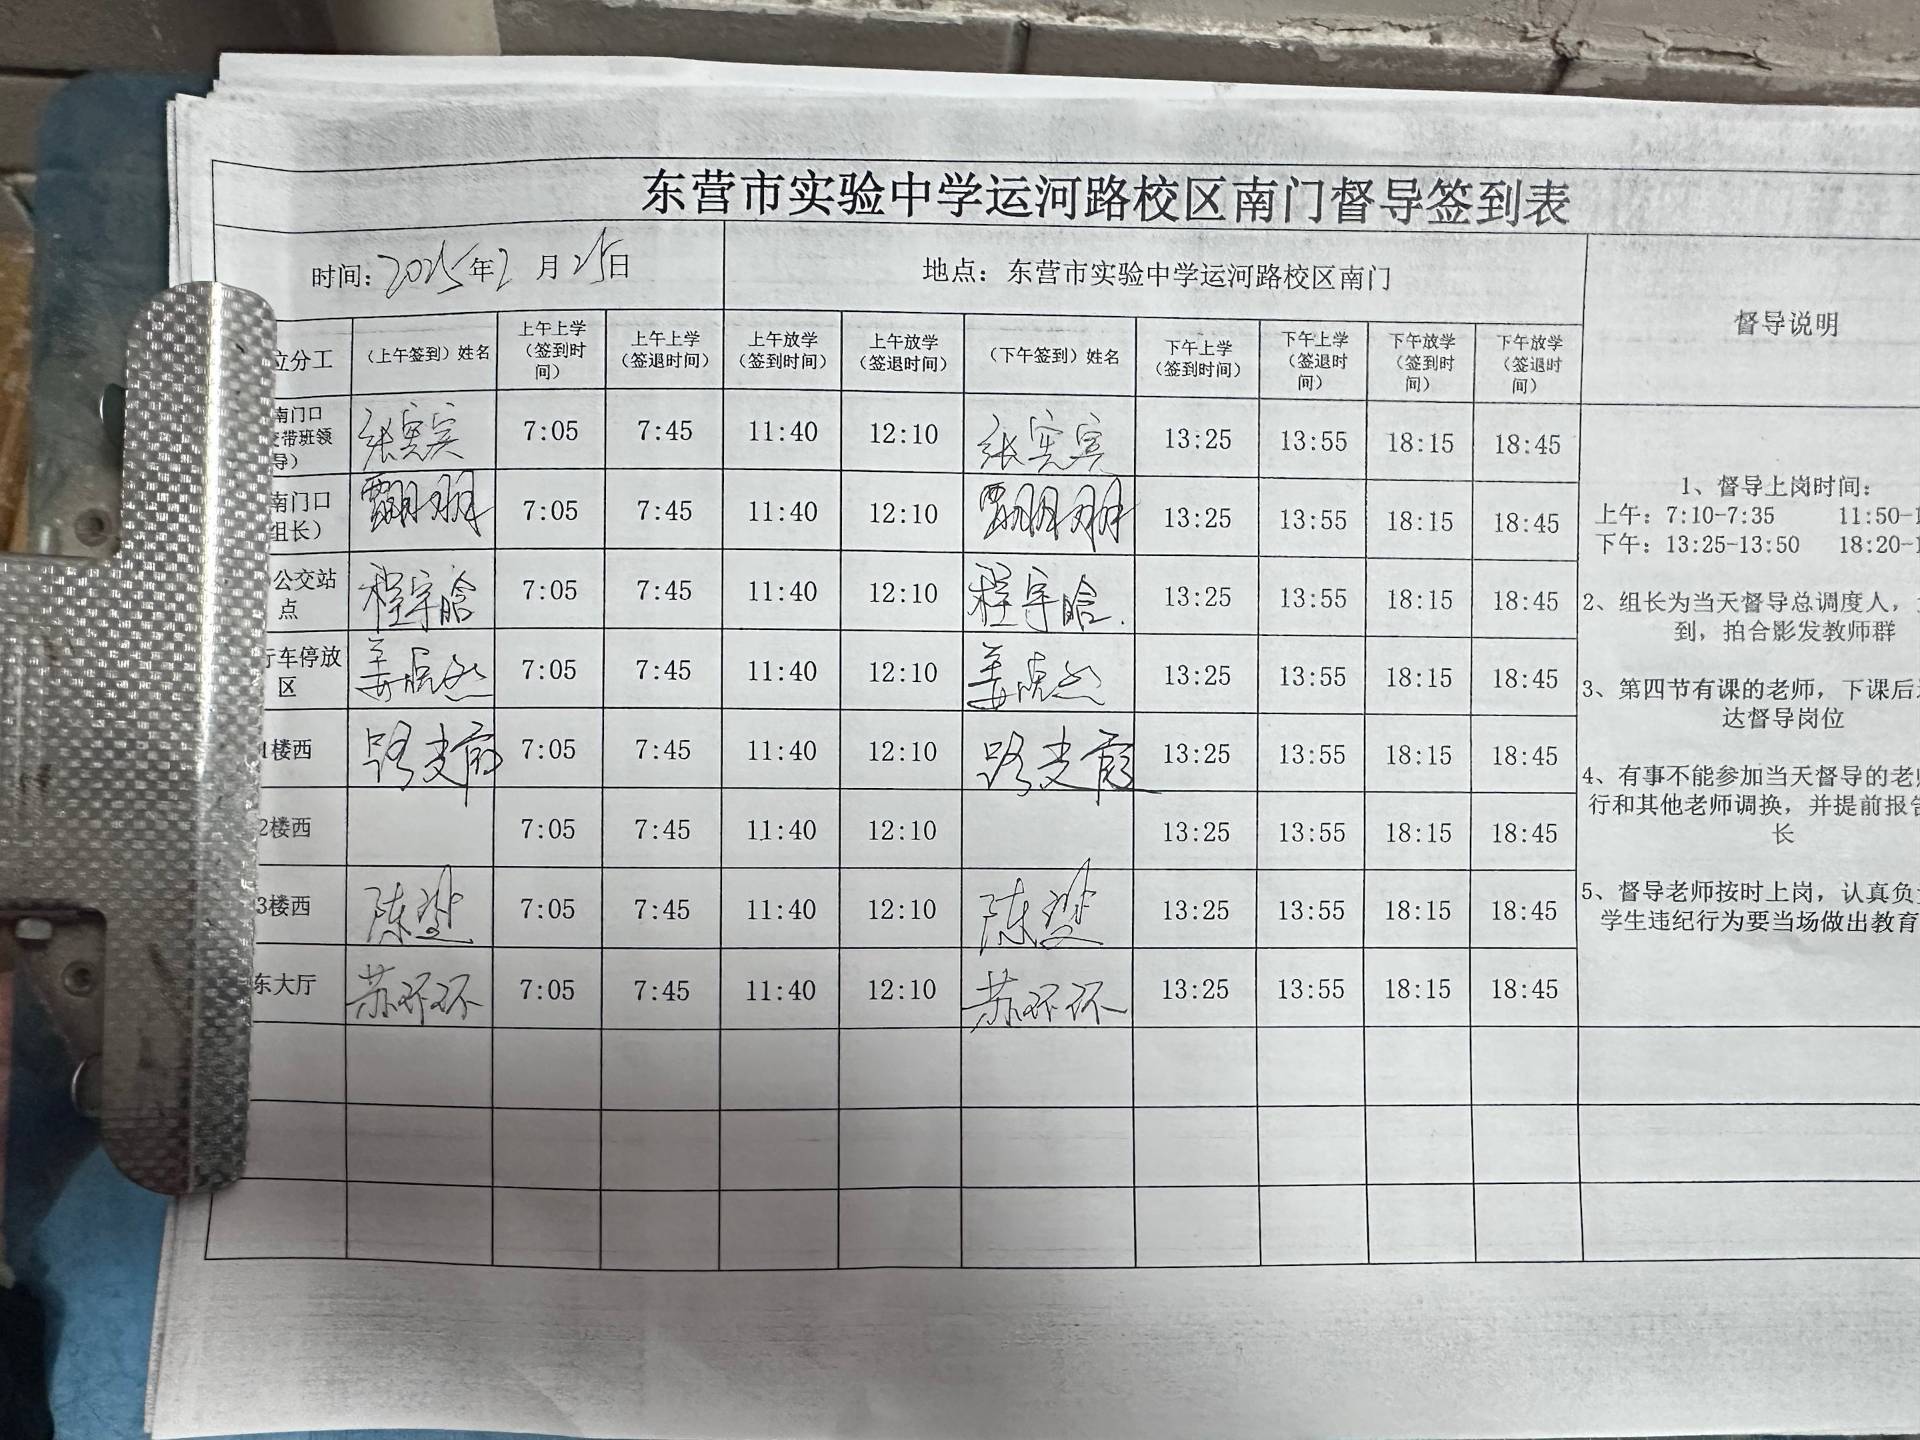 东营市实验中学运河路校区南门督导签到表
时间:2025年2月25日 地点：东营市实验中学运河路校区南门 督导说明
立分工 （上午签到）姓名 上午上学（签到时间） 上午上学（签退时间） 上午放学（签到时间） 上午放学（签退时间） （下午签到）姓名 下午上学（签到时间） 下午上学（签退时间） 下午放学（签到时间） 下午放学（签退时间）
南门口 带班领导） 张宪宾 7:05 7:45 11:40 12:10 张宪宾 13:25 13:55 18:15 18:45
南门口 组长） 翻朋 7:05 7:45 11:40 12:10 13:25 13:55 18:15 18:45
公交站点 程宇晗 7:05 7:45 11:40 12:10 程宇晗 13:25 13:55 18:15 18:45
行车停放区 姜 7:05 7:45 11:40 12:10 姜 13:25 13:55 18:15 18:45
1楼西 路支霞 7:05 7:45 11:40 12:10 路支霞 13:25 13:55 18:15 18:45
2楼西 7:05 7:45 11:40 12:10 13:25 13:55 18:15 18:45
3楼西 陈 7:05 7:45 11:40 12:10 陈 13:25 13:55 18:15 18:45
东大厅 苏环环 7:05 7:45 11:40 12:10 苏环环 13:25 13:55 18:15 18:45
1、督导上岗时间：
上午：7:10-7:35 11:50-1
下午：13:25-13:50 18:20-1
2、组长为当天督导总调度人，
到，拍合影发教师群
3、第四节有课的老师，下课后
达督导岗位
4、有事不能参加当天督导的老师
行和其他老师调换，并提前报告
长
5、督导老师按时上岗，认真负
学生违纪行为要当场做出教育